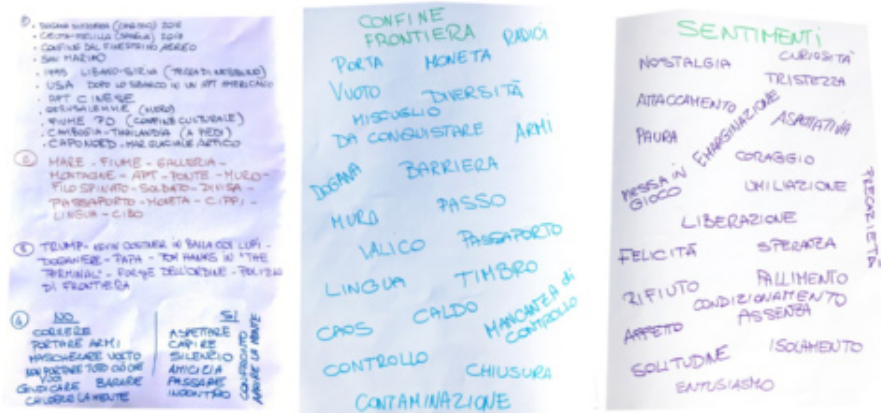 1
. DOGANA SVIZZERA (CHIASSO) 2018
. CEUTA-MELILLA (SPAGNA) 2017
. CONFINE DAL FINESTRINO AEREO
. SAN MARINO
. 1995 LIBANO-SIRIA (TERRA DI NESSUNO)
. USA DOPO LO SBARCO IN UN APT AMERICANO
. APT CINESE
. GERUSALEMME (MURO)
. FIUME PO (CONFINE CULTURALE)
. CAMBOGIA-THAILANDIA (A PIEDI)
. CAPO NORD - MAR GLACIALE ARTICO
2 MARE - FIUME - GALLERIA -
MONTAGNE - APT - PONTE - MURO -
FILO SPINATO - SOLDATO - DIVISA -
PASSAPORTO - MONETA - CIPPI -
LINGUA - CIBO
3 TRUMP - KEVIN COSTNER IN BALLA COI LUPI -
DOGANIERE - PAPA - TOM HANKS IN "THE
TERMINAL" - FORZE DELL'ORDINE - POLIZIA
DI FRONTIERA
4 NO
CORRERE
PORTARE ARMI
MASCHERARE VOLTO
NON PORTARE TUTTO CIÒ CHE
VUOI
GIUDICARE BARARE
CHIUDERE LA MENTE
SI
ASPETTARE
CAPIRE
SILENZIO
AMICIZIA
PASSARE
INCONTRO
CONFRONTO
APRIRE LA MENTE
CONFINE
FRONTIERA
RADICI
PORTA MONETA
VUOTO DIVERSITÀ
MISCUGLIO
DA CONQUISTARE ARMI
DOGANA BARRIERA
MURO PASSO
VALICO PASSAPORTO
LINGUA TIMBRO
CAOS CALDO MANCANZA di
CONTROLLO
CONTROLLO CHIUSURA
CONTAMINAZIONE
SENTIMENTI
NOSTALGIA CURIOSITÀ
TRISTEZZA
ATTACCAMENTO
EMARGINAZIONE
ASPETTATIVA
PAURA
CORAGGIO
MESSA IN
GIOCO
UMILIAZIONE
PRECARIETÀ
LIBERAZIONE
FELICITÀ SPERANZA
RIFIUTO FALLIMENTO
CONDIZIONAMENTO
AFFETTO ASSENZA
SOLITUDINE ISOLAMENTO
ENTUSIASMO